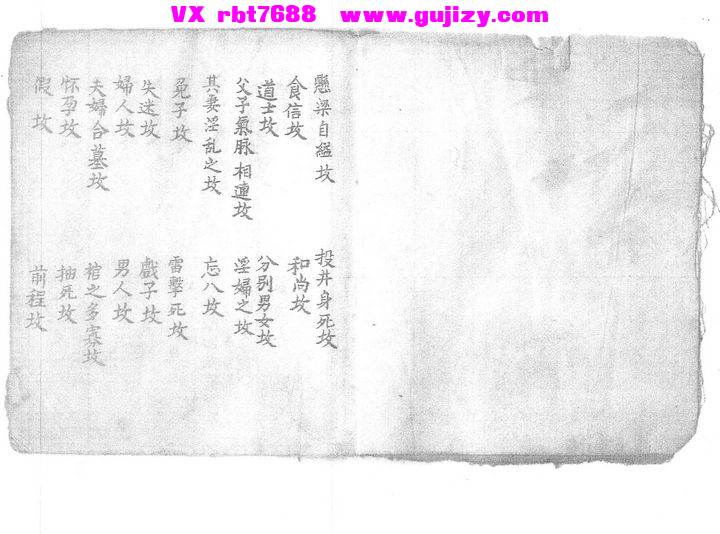 VX rbt7688 www.gujizy.com
懸梁自縊坟
投井身死坟
食信坟
和尚坟
道士坟
分别男女坟
父子氣脉相連坟
淫婦之坟
其妻淫乱之坟
忘八坟
兎子坟
雷擊死坟
失迷坟
戲子坟
婦人坟
男人坟
夫婦合墓坟
棺之多寡坟
怀孕坟
抽死坟
假坟
前程坟